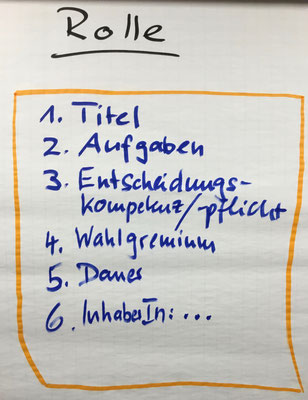 Rolle
1. Titel
2. Aufgaben
3. Entscheidungs-
kompetenz/-pflicht
4. Wahlgremium
5. Dauer
6. InhaberIn: ...